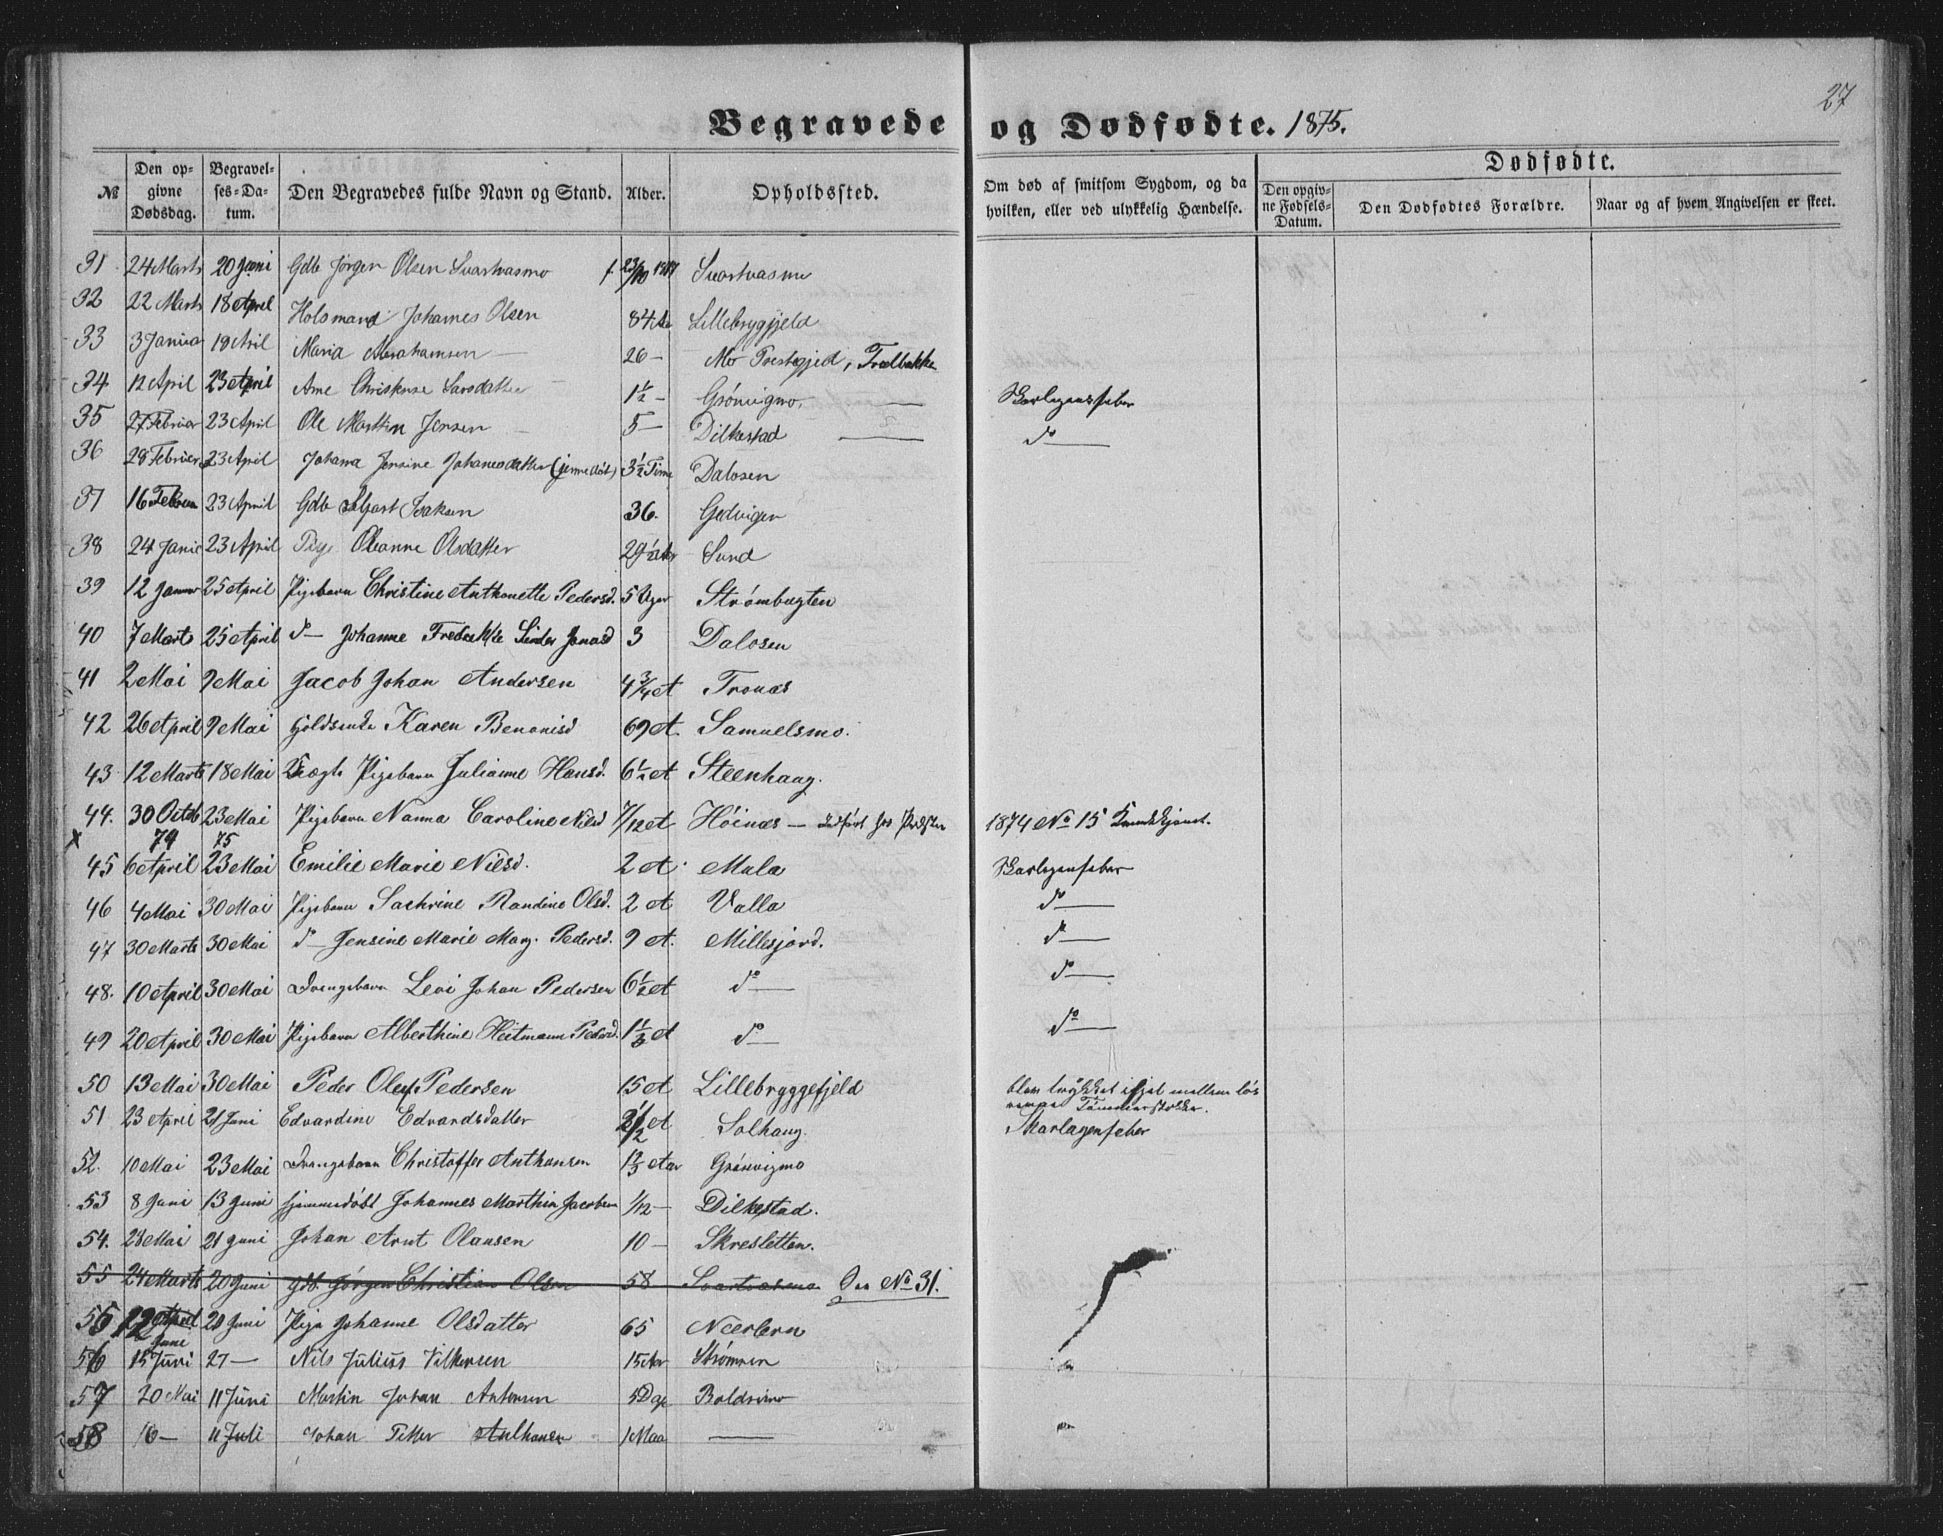 27
Begravede og Dødfødte. 1875.
№
Den opgivne Dødsdag.
Begravelses-Datum.
Den Begravedes fulde Navn og Stand.
Alder.
Opholdssted.
Om død af smitsom Sygdom, og da hvilken, eller ved ulykkelig Hændelse.
Dødfødte.
Den opgivne Fødsels-Datum.
Den Dødfødtes Forældre.
Naar og af hvem Angivelsen er skeet.
31 24 Marts 20 Juni Gdb Jörgen Olsen Svartvasmo f. 23/10 Svartvasmo
32 22 Marts 18 April Holsmand Johannes Olsen 84 Lillebrygfjeld
33 3 Janua 19 April Maria Abrahamsen 26 – Mo Prestegjeld, Trælbakke
34 12 April 23 April Ane Larsdatter 1½ – Grönvigmo, Skarlagensfeber
35 27 Februar 23 April Ole Martin Jensen 5 – Dilkestad do –
36 28 Februar 23 April Johana Jensine Johanesdatter (jemedøbt) 3½ Time Dalosen
37 16 Februar 23 April Gdb 36. Gedvigen
38 24 Janu 23 April Pige Oleanne Olsdatter 29½ Aar Sund
39 12 Januar 25 April Pigebarn Christine Anthonette Pedersd. 5 Uger Strömbugten
40 7 Marts 25 April do – Johanne Fredrikke Jonasd 3 Dalosen
41 2 Mai 9 Mai Jacob Johan Andersen 4¾ A Tronæs
42 26 April 9 Mai Karen Benonisd 69 A. Samuelsmo.
43 12 Marts 18 Mai Lægds Pigebarn Julianne Hansd. 6½ A Steenhaug.
44. 30 Octb 23 Mai Pigebarn Nanna Caroline Nilsd 7/12 A Höinæs – 1874 No 15
x 74 75
45 6 April 23 Mai Emilie Marie Nilsd. 2 A. Mula Skarlagenfeber
46 4 Mai 30 Mai Pigebarn Sachrine Randine Olsd. 2 A Valla do –
47 30 Marts 30 Mai do – Jensine Marie Marg. Pedersd. 9 A. Millesjord. do –
48. 10 April 30 Mai Drengebarn Levi Johan Pedersen 6½ A do – do –
49 20 April 30 Mai Pigebarn Alberthine Heitmann Pedersd. 1⅓ A do – do –
50 13 Mai 30 Mai Peder Oluf Pedersen 15 A Lillebryggefjeld blev trykket ihjel mellem løs
Tömmerstokke.
51. 23 April 21 Juni Edvardine Edvardsdatter 2½ A Solhaug. Skarlagenfeber
52. 10 Mai 23 Mai Drengebarn Christoffer Anthonsen 1⅔ Aar Grönvigmo
53 8 Juni 13 Juni hjemmedöbt Johannes Marthin Jacobsen 1/12 – Dilkestad.
54. 28 Mai 21 Juni Johan Arnt Olausen 10 – Skresletten.
55 24 Marts 20 Juni gdb. Jørgen Christian Olsen 58 Svartvasmo See No 31.
55 12 April 20 Juni Pige Johanne Olsdatter 65 Neerlern
Juni
56 15 Juni 27 – Nils Julius Vilkersen 15 Aar Strømsen
57 20 Mai 11 Juni Martin Johan Antonsen 5 Dag Boldsvimo
58 16 – 11 Juli Johan Petter Anthonsen 1 Maa –